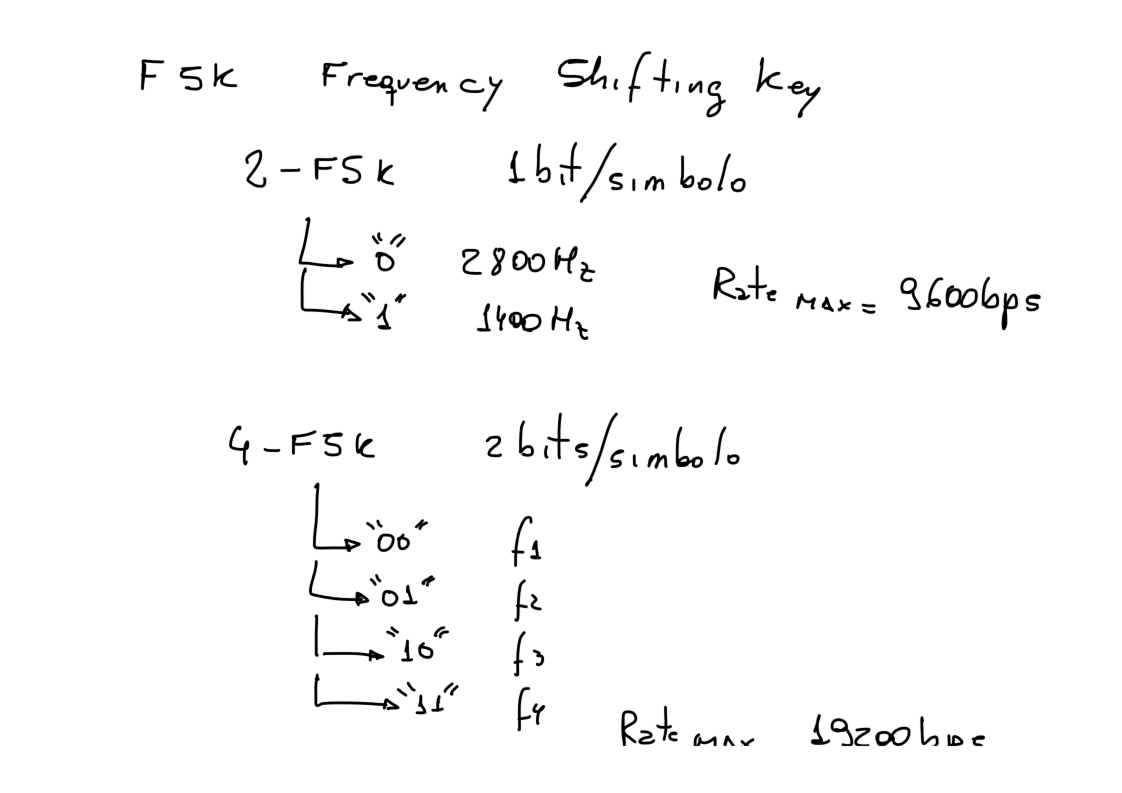 FSK Frequency Shifting Key
2-FSK 1bit/simbolo
"0" 2800Hz
Rate MAX = 9600bps
"1" 1400Hz
4-FSK 2bits/simbolo
"00" f1
"01" f2
"10" f3
"11" f4
Rate MAX 19200bps